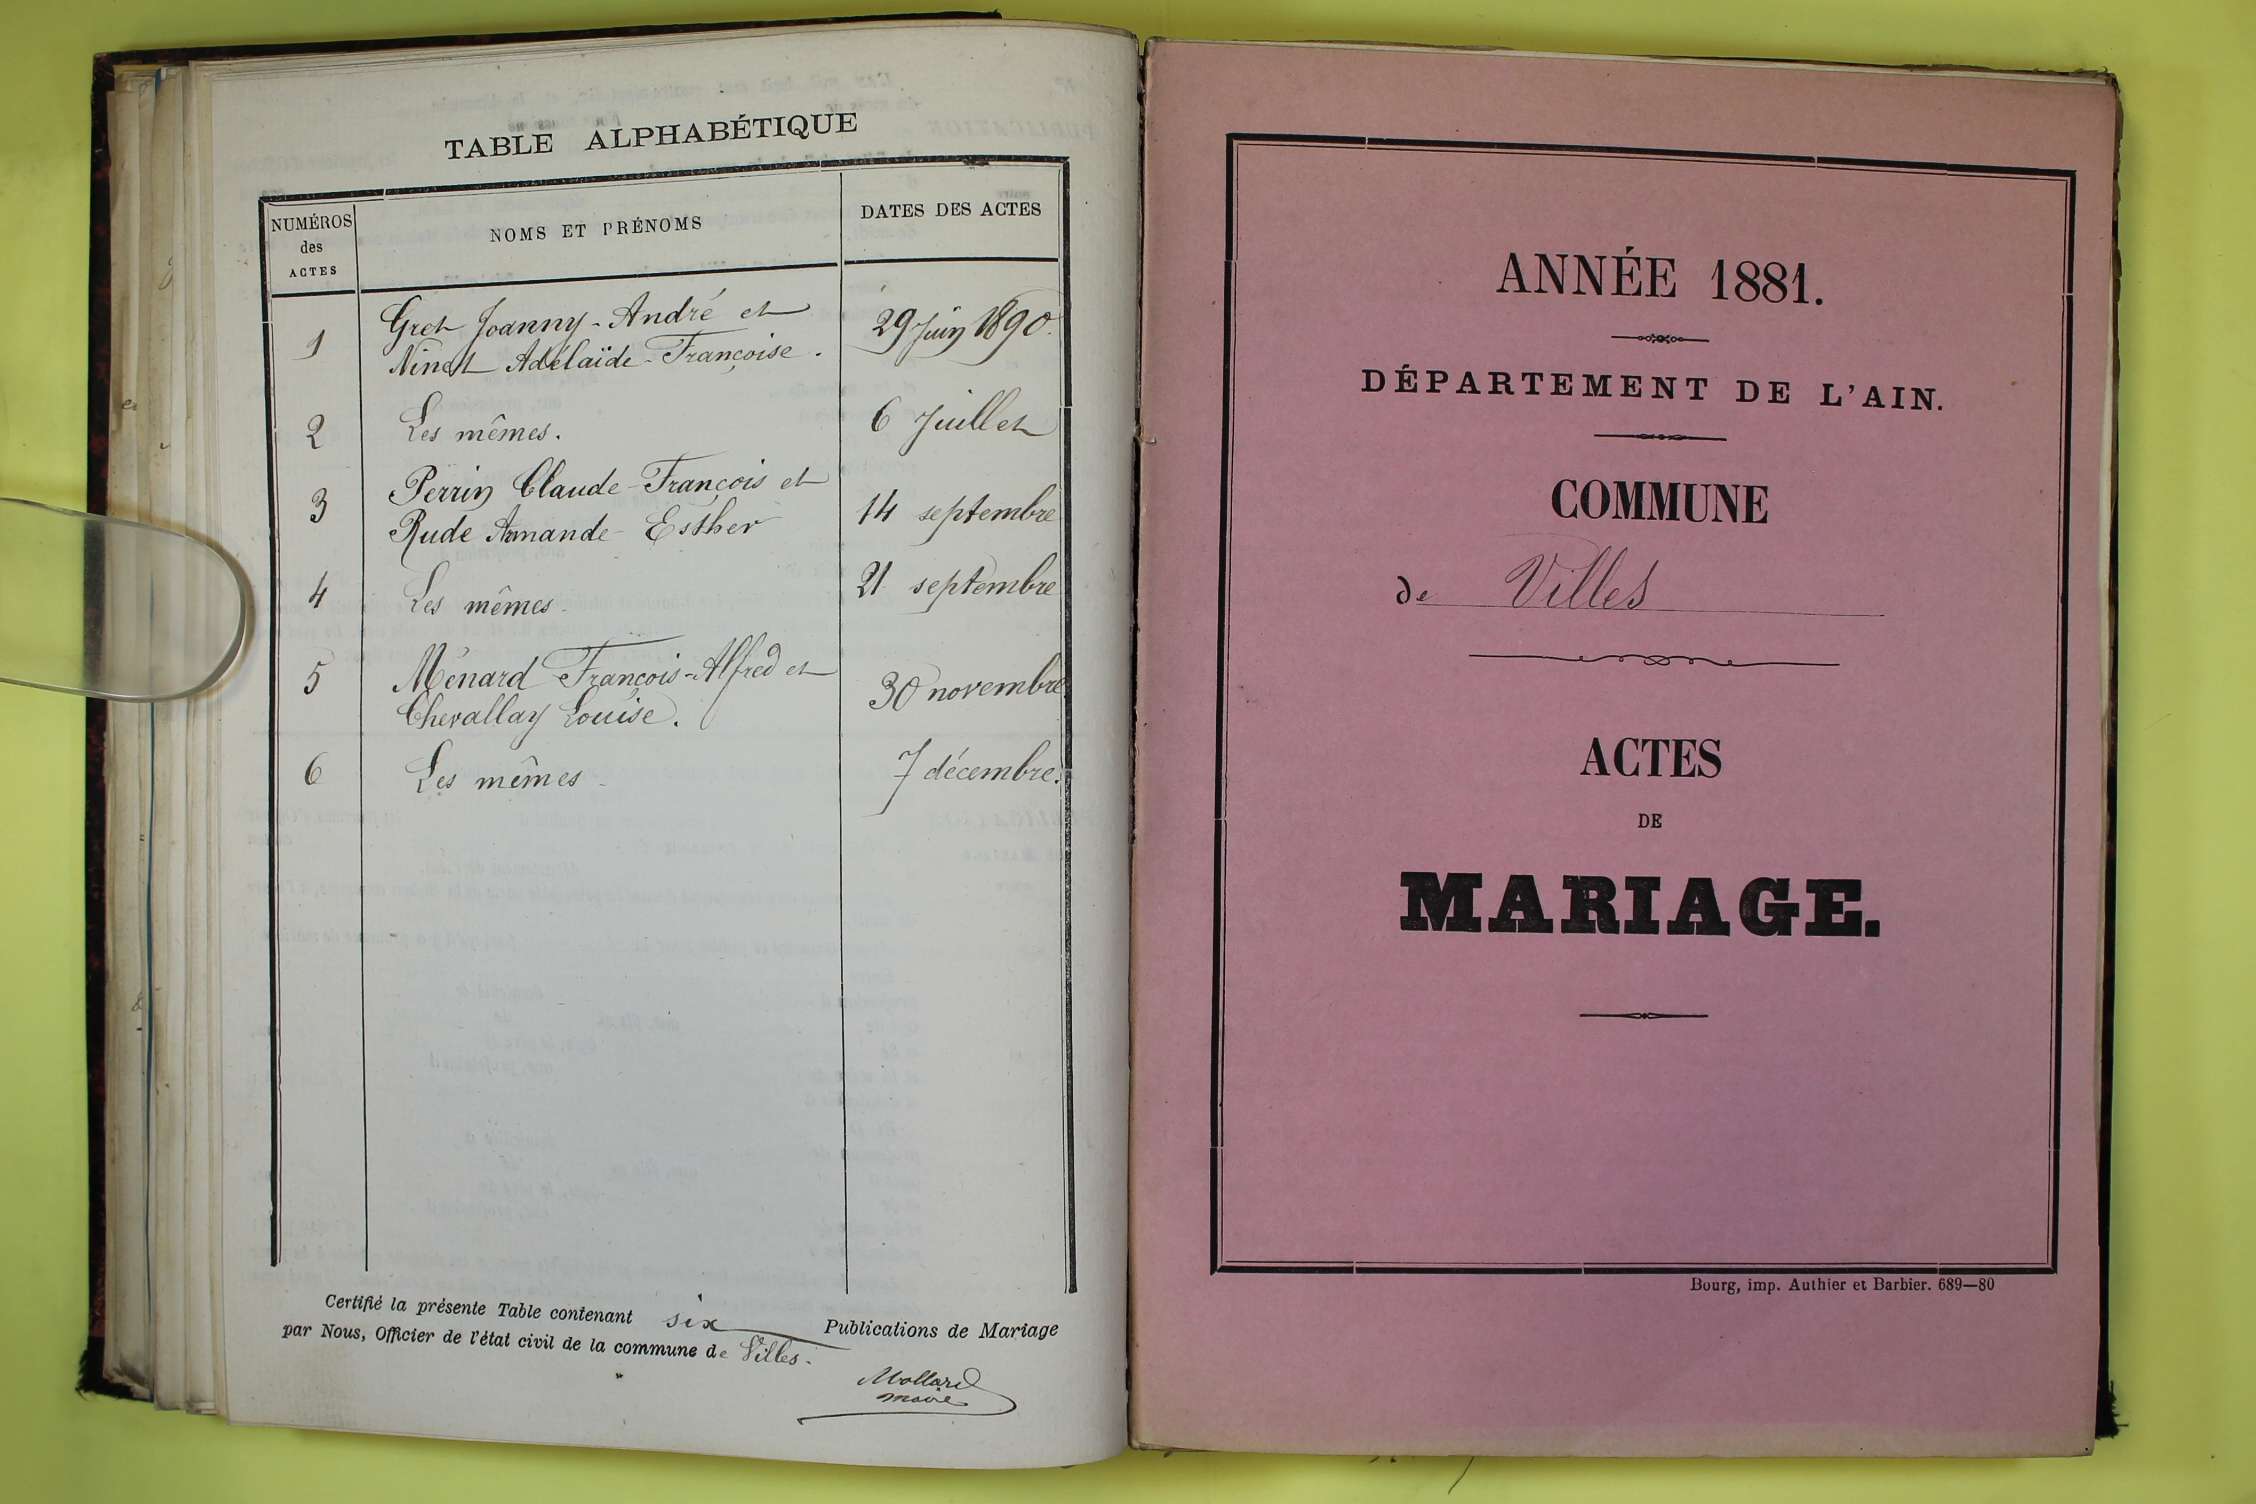 TABLE ALPHABÉTIQUE
NUMÉROS
des
ACTES
NOMS ET PRÉNOMS
DATES DES ACTES
1
Gret Joanny-André et
Ninet Adélaïde-Françoise.
29 Juin 1890.
2
Les mêmes.
6 Juillet
3
Perrin Claude-François et
Rude Armande-Esther
14 septembre
4
Les mêmes.
21 septembre
5
Ménard François-Alfred et
Chevallay Louise.
30 novembre
6
Les mêmes
7 décembre.
Certifié la présente Table contenant six Publications de Mariage
par Nous, Officier de l'état civil de la commune de Villes.
Mollard
maire
ANNÉE 1881.
DÉPARTEMENT DE L'AIN.
COMMUNE
de Villes
ACTES
DE
MARIAGE.
Bourg, imp. Authier et Barbier. 689—80